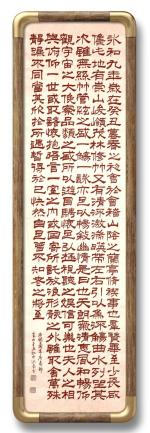 永和九年歲在癸丑暮春之初會於會稽山陰之蘭亭修禊事也羣賢畢至少長咸
集此地有崇山峻領茂林修竹又有清流激湍映帶左右引以為流觴曲水列坐其
次雖無絲竹管弦之盛一觴一詠亦足以暢敘幽情是日也天朗氣清惠風和暢仰
觀宇宙之大俯察品類之盛所以遊目騁懷足以極視聽之娛信可樂也夫人之相
與俯仰一世或取諸懷抱悟言一室之內或因寄所託放浪形骸之外雖趣舍萬殊
靜躁不同當其欣於所遇暫得於己快然自足不知老之將至